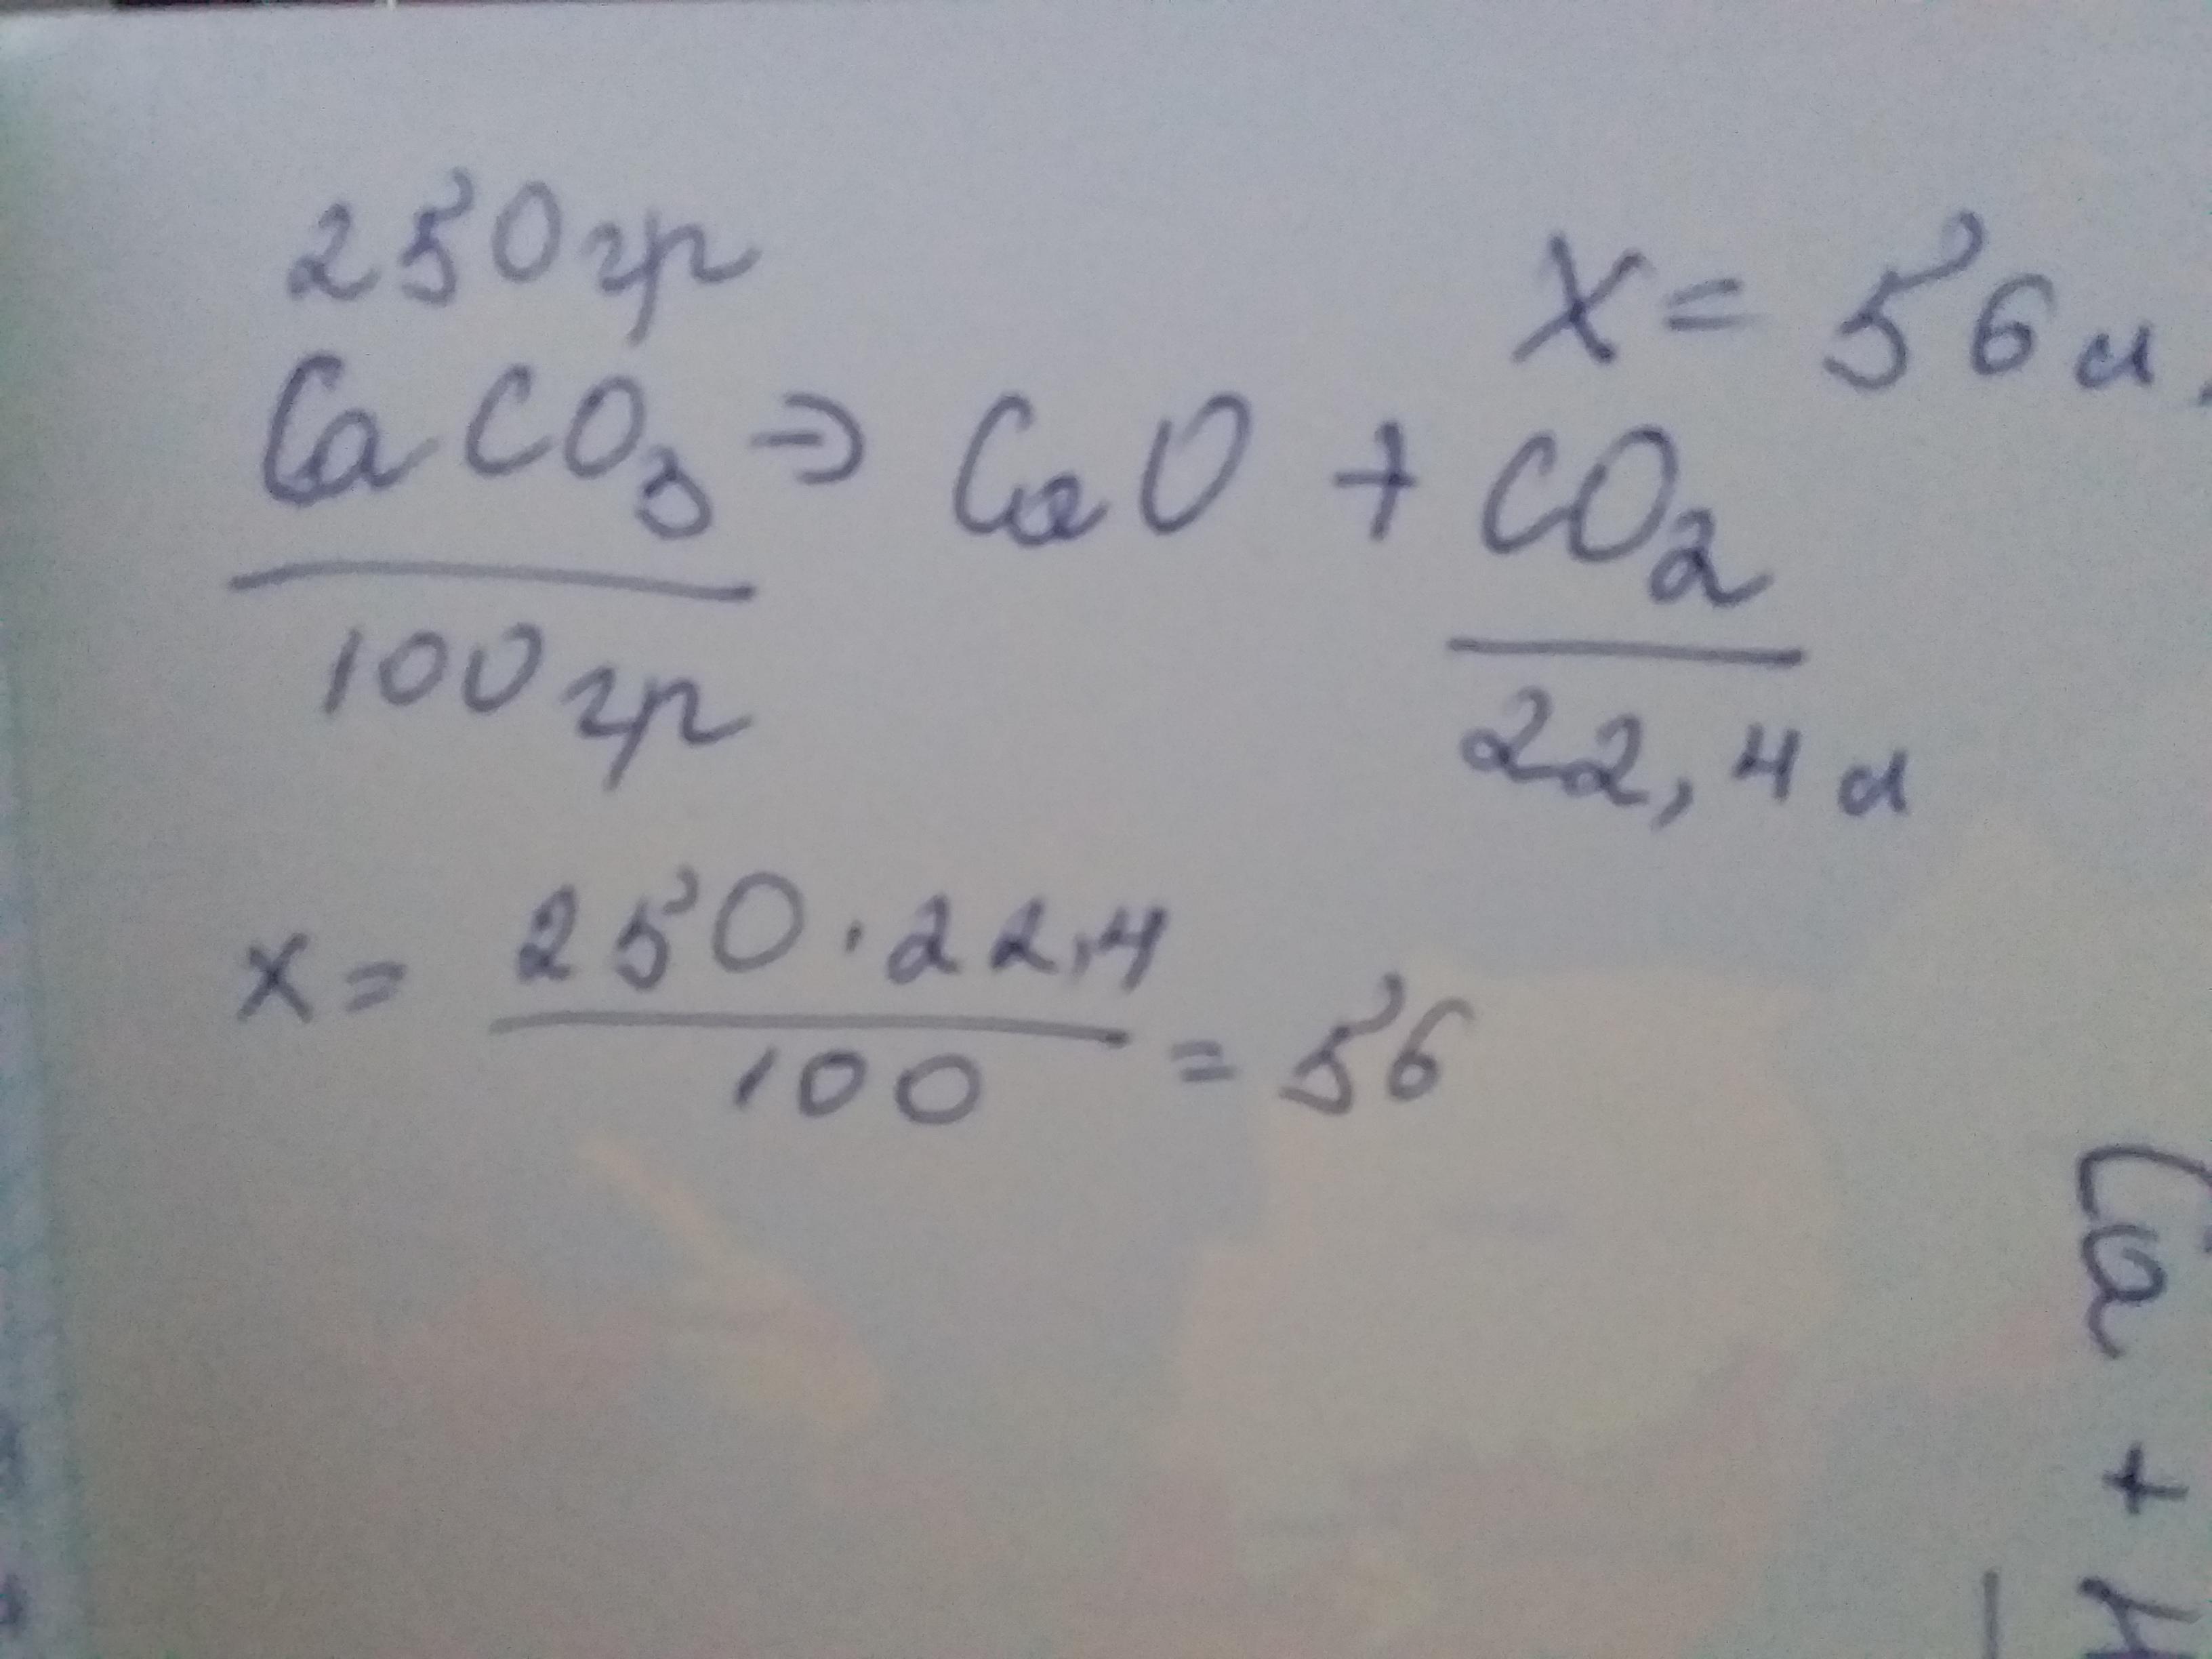 250гр
x = 56л.
CaCO₃ ⇒ CaO + CO₂
100гр
22,4л
x = 250 · 22,4 / 100 = 56
Ca +